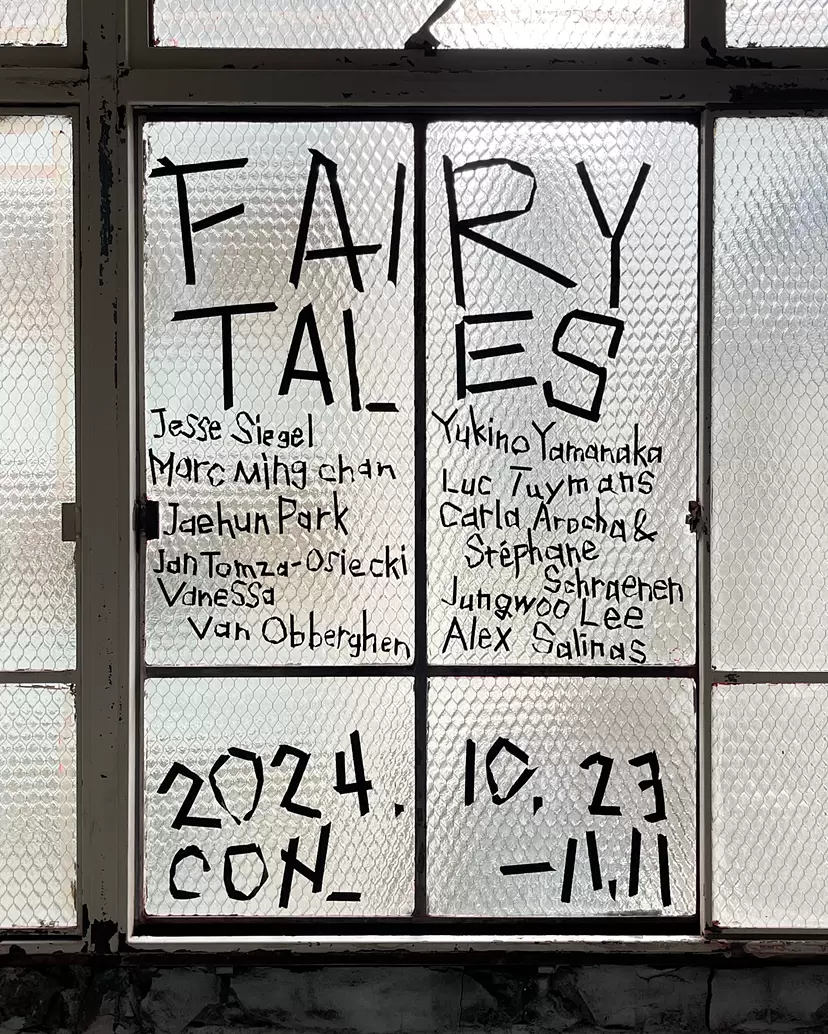 FAIRY
TALES
Jesse Siegel
Marc Ming chan
Jaehun Park
Jan Tomza-Osiecki
Vanessa
Van Obberghen
Yukino Yamanaka
Luc Tuymans
Carla Arocha &
Stéphane
Schraenen
Jungwoo Lee
Alex Salinas
2024. 10. 23
CON_ -11.11